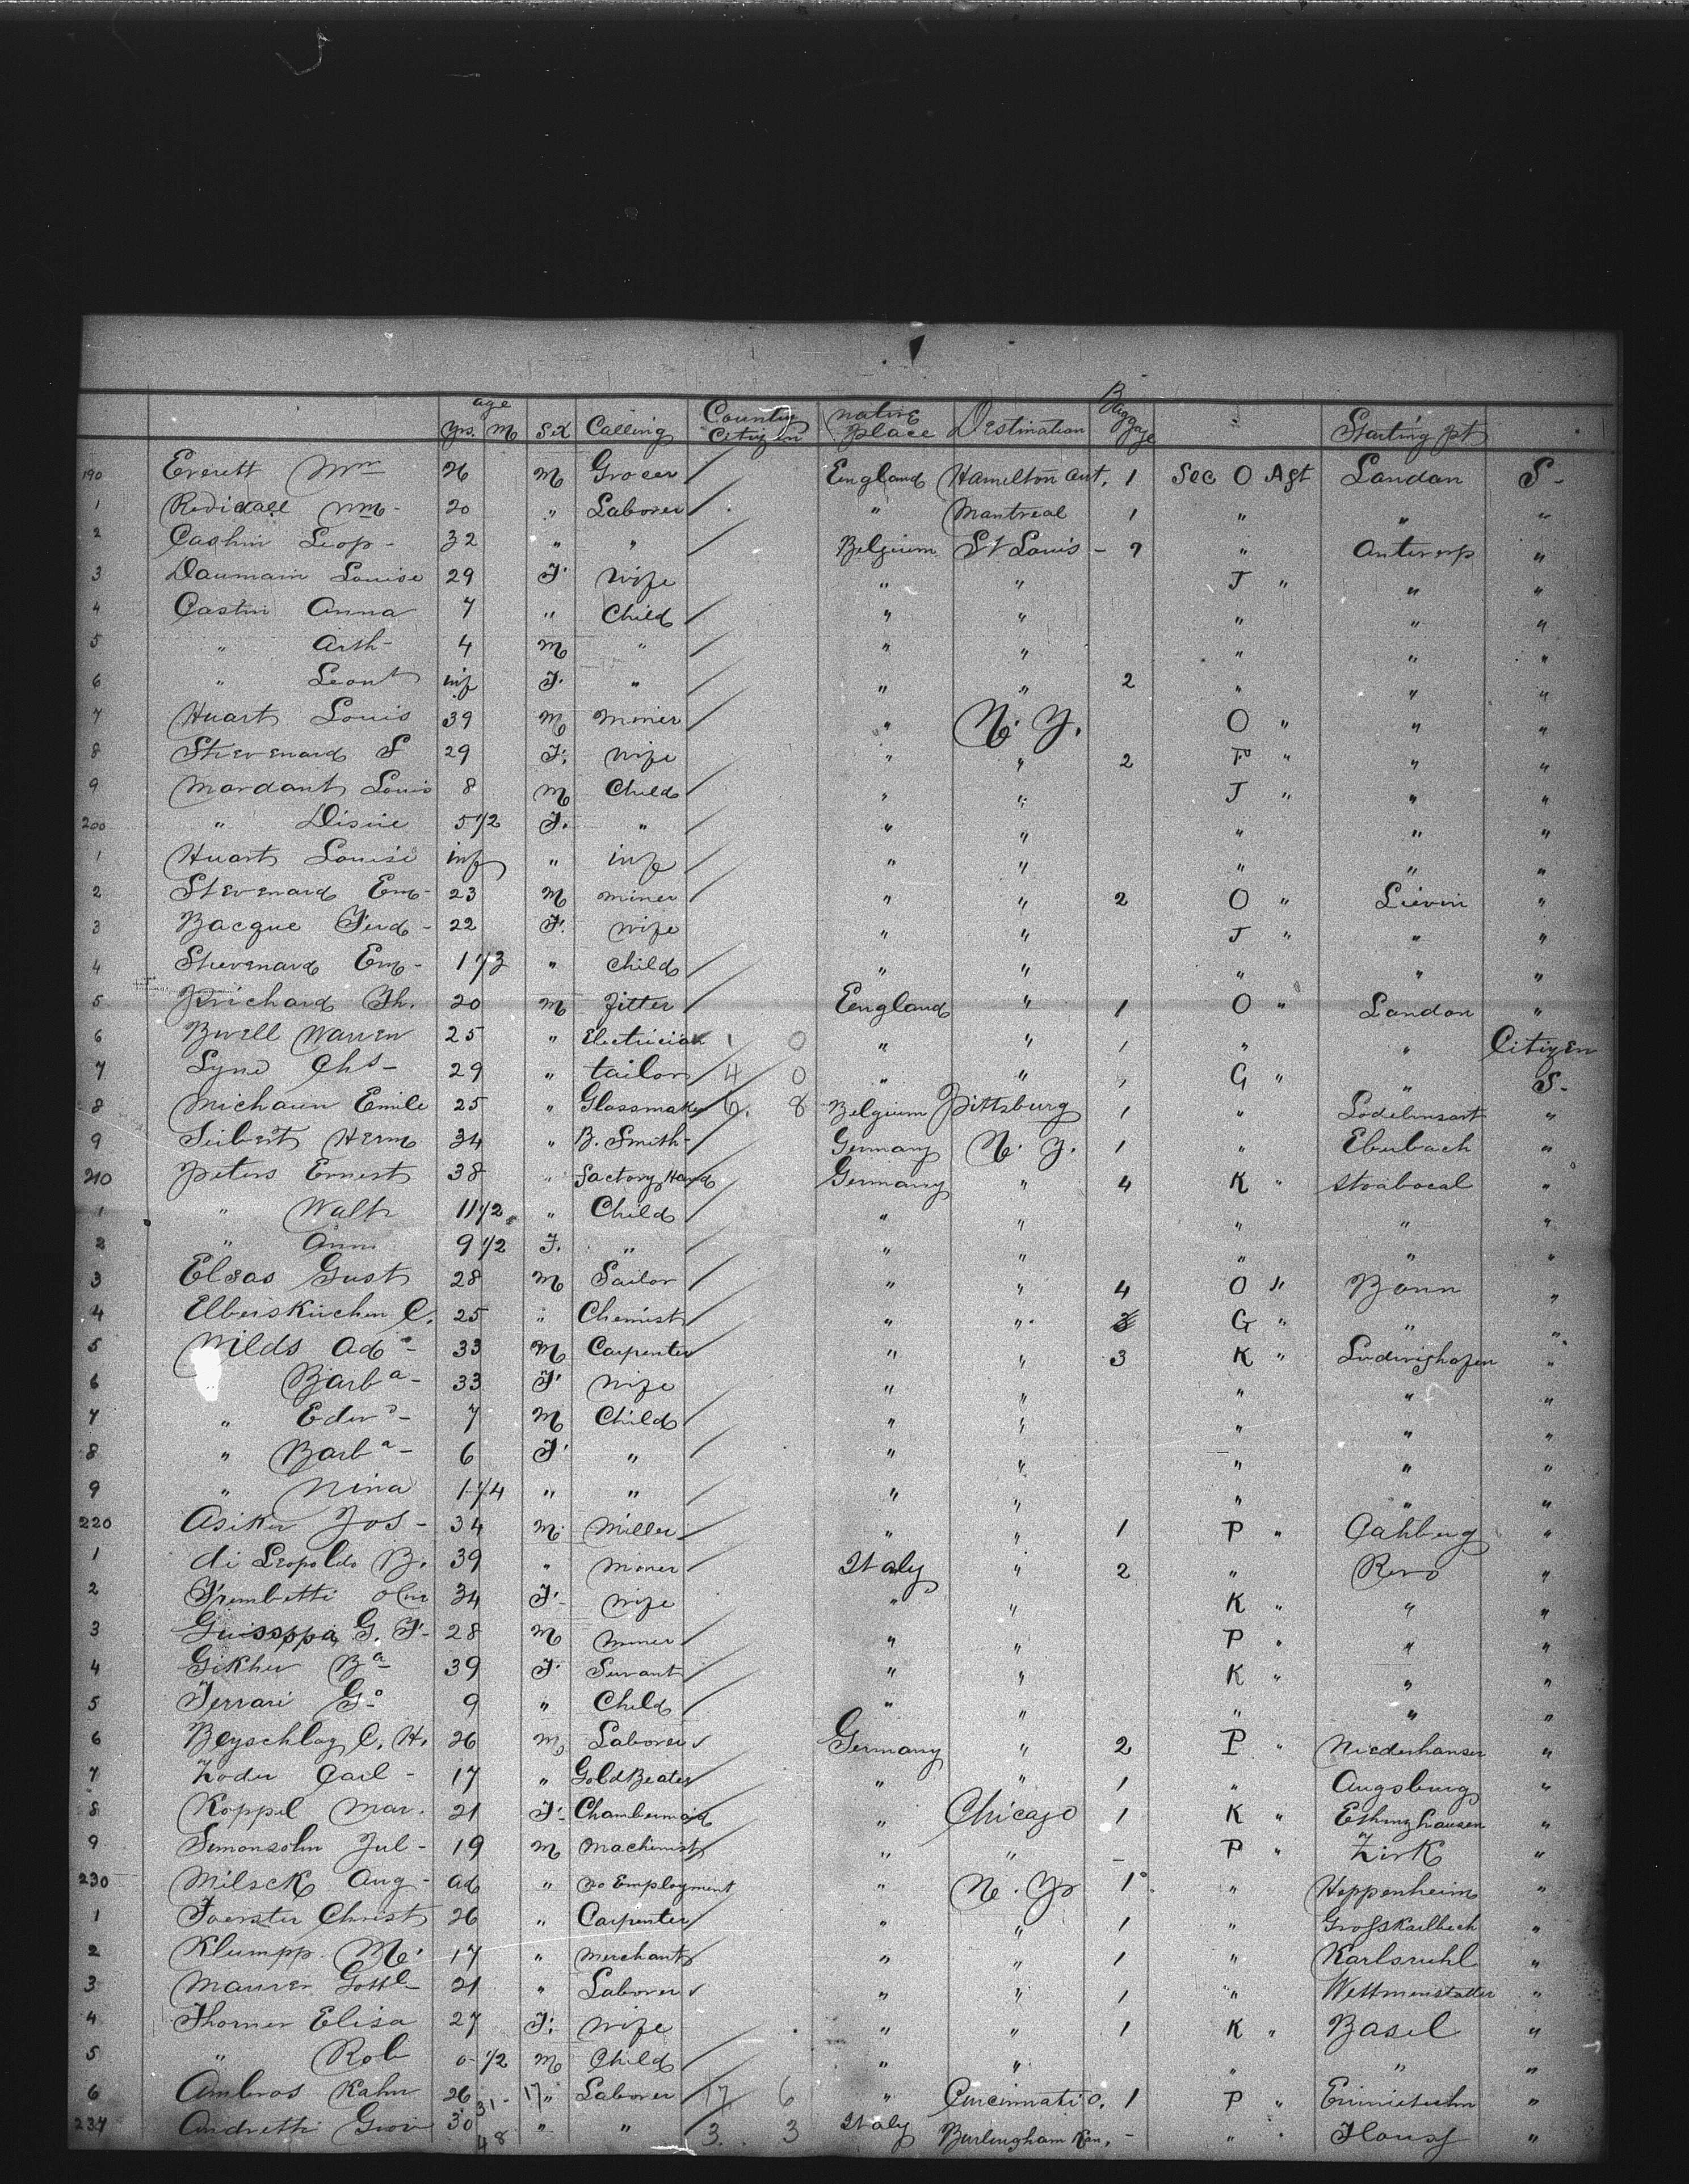 age Baggage
yrs. M Sex Calling Country Citizen native place Destination Starting pt
190 Everett Wm 26 M Grocer England Hamilton Ont. 1 Sec O Aft London S-
1 Wm- 20 " Laborer " Montreal 1 " " "
2 Cashin Leop- 32 " " Belgium St Louis - 7 " Antwerp "
3 Daumain Louise 29 F. Wife " " J " " "
4 Castin Anna 7 " Child " " " " "
5 " Arth- 4 M " " " " " "
6 " Leont inf F. " " " 2 " " "
7 Huart Louis 39 M Miner " N. Y. O " " "
8 Stievenard S 29 F. Wife " " 2 F " " "
9 Mordant Louis 8 M Child " " J " " "
200 " Disiie 5 1/2 F. " " " " " "
1 Huart Louise inf " inf " " " " "
2 Stevenard Em- 23 M miner " " 2 O " Lievin "
3 Bacque Ferd- 22 F. Wife " " J " " "
4 Stievenard Em- 1 1/3 " Child " " " " "
5 Prichard Th. 20 M Fitter England " 1 O " London "
6 Warren 25 " Electrician 1 0 " " 1 " " Citizen
7 Lynd Chs- 29 " tailor 4 0 " " , G " " S-
8 Michaux Emile 25 " Glassmaker 6. 8 Belgium Pittsburg 1 " Lodelinsart "
9 Seibert Herm 34 " B. Smith- Germany N. Y. 1 " Eberbach "
210 Peters Ernest 38 " Factory Hand Germany " 4 K " "
1 " Walt 11 1/2 " Child " " " " "
2 " Ann 9 1/2 F. " " " " " "
3 Elsas Gust 28 M Sailor " " 4 O " Bonn "
4 Elberskirchen C. 25 " Chemist " " 3 G " " "
5 Wilds Ad- 33 M Carpenter " " 3 K " Ludwigshafen "
6 " Barba- 33 F. Wife " " " " "
7 " Edw- 7 M Child " " " " "
8 " Barba- 6 F. " " " " " "
9 " Nina 1 1/4 " " " " " " "
220 Asiker Jos- 34 M. Miller " " 1 P " "
1 di Leopoldo B. 39 " Miner Italy " 2 " Revo "
2 34 F. Wife " " K " " "
3 Guisoppa G. F- 28 M miner " " P " " "
4 Gikher Ba 39 F. Servant " " K " " "
5 Ferrari Go 9 " Child " " " " "
6 Beyschlag C. H. 26 M Laborer Germany " 2 P " Niederhausen "
7 Zoder Carl- 17 " Gold Beater " " 1 " Augsburg "
8 Koppel Mar. 21 F- Chambermaid " Chicago 1 K " "
9 Simonsohn Jul- 19 M Machinist " " - P " Zirk "
230 Milsck Aug- ad " no Employment " N. Y. 1 " Heppenheim "
1 Foerster Christ 26 " Carpenter " " 1 " Grosskarlbach "
2 Klumpp M. 17 " Merchant " " 1 " Karlsruhl "
3 Maurer Gottl- 21 " Laborer " " 1 " Wettmenstatten "
4 Thorner Elisa 27 F. Wife " " 1 K " Basel "
5 " Rob 0 1/2 M Child " " " " "
6 Ambros Kahn 26 31- 17 " Laborer 17 6 " Cincinnati O. 1 P " "
237 Andretti Giov 30 48 " " 3. 3 Italy Burlingham Kan. - " " "